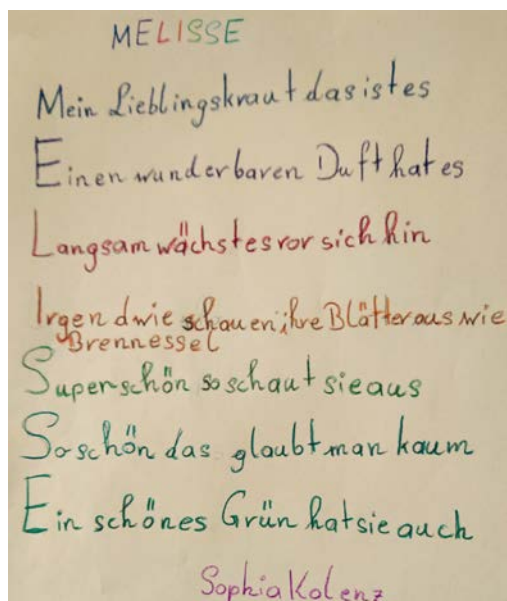 MELISSE
Mein Lieblingskraut das ist es
Einen wunderbaren Duft hat es
Langsam wächst es vor sich hin
Irgendwie schauen ihre Blätter aus wie
Brennessel
Superschön so schaut sie aus
So schön das glaubt man kaum
Ein schönes Grün hat sie auch
Sophia Kolenz